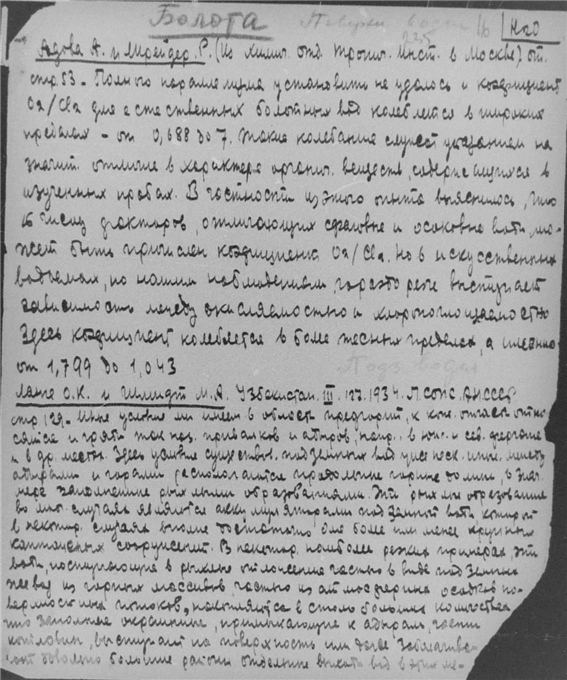 Болота
Адова А. и Шрейдер Р. (Из химич. отд. Тропич. Инст. в Москве) от.
стр. 53 - Полного параллелизма установить не удалось и коэфициент
Ox/Cl2 для естественных болотных вод колеблется в широких
пределах - от 0,688 до 7. Такие колебания служат указанием на
значит. отличие в характере органич. веществ, содержащихся в
изученных пробах. В частности из этого опыта выяснилось, что
к числу факторов, отличающих сфагновые и осоковые воды, мо-
жет быть причислен коэфициент Ox/Cl2. Но в искусственных
водоемах, по нашим наблюдениям, гораздо резче выступает
зависимость между окисляемостью и хлорпоглощаемостью
Здесь коэфициент колеблется в более тесных пределах, а именно
от 1,799 до 1,043
Подз. воды
Ланге О.К. и Шмидт М.А. Узбекистан. III. 127. 1934. Л. СОПС. АН СССР
стр 129 - Иные условия мы имеем в области предгорий, к кот. относят
и гряды так наз. и адыров, напр. в юж. и сев. Фергане
и в др. местах. Здесь условия существов. подземных вод иные. между
адырами и горами располагаются продольные горные долины,
заполненные рыхлыми образованиями. Эти рыхлые образования
во мног. случаях являются аккумуляторами подземных вод, которых
в некотор. случаях вполне достаточно для более или менее крупных
каптажных сооружений. В некотор. наиболее резких примерах эти
воды, поступающие в рыхлые отложения частью в виде подземных
же вод из горных массивов, частью из атмосферных осадков и
потоков, накопляются в столь больших количествах
что заполняя окраинные, примыкающие к адырам, части
котловин, выступают на поверхность или даже заболачива-
ют довольно большие районы